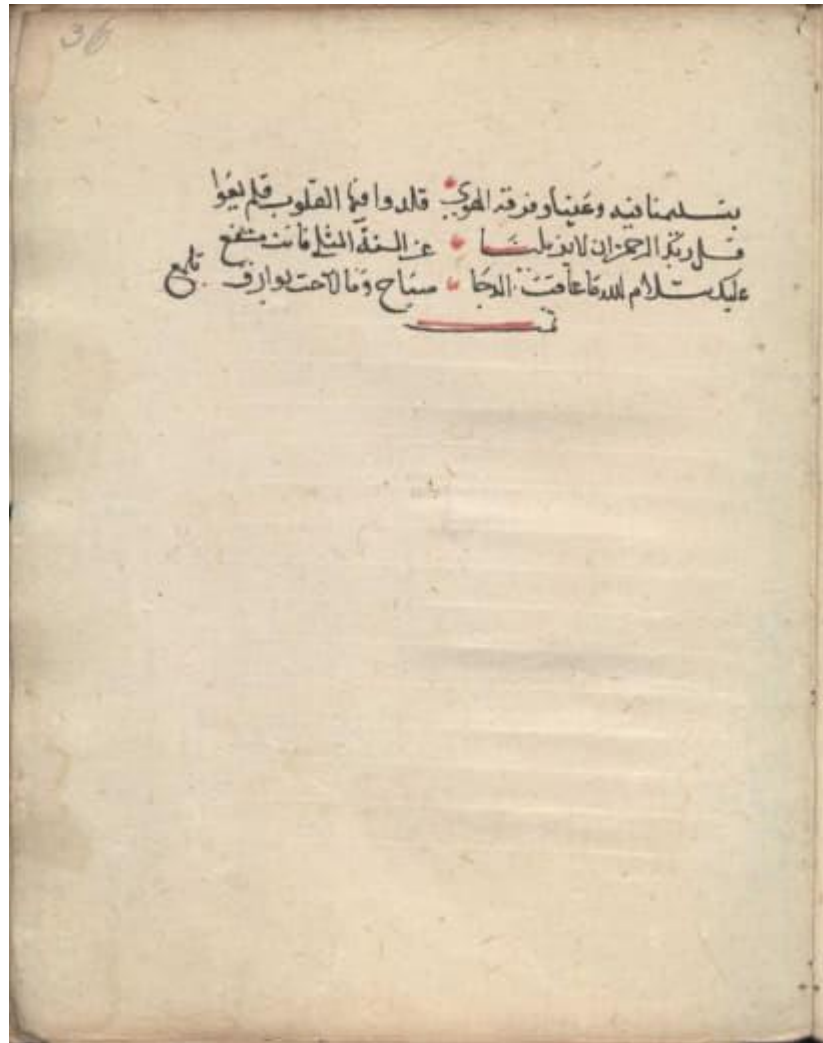 36
بتسليمنا فيه وعينا وفرقة الهوي قلدوا فيها القلوب فلم يعوا
فسل ربك الرحمن ان لا يزيلنا عن السنة المثلي فانت مشفع
عليك سلام الله ما عاقب الدجا صباح وما لاحت بوارق تلمع
تمت